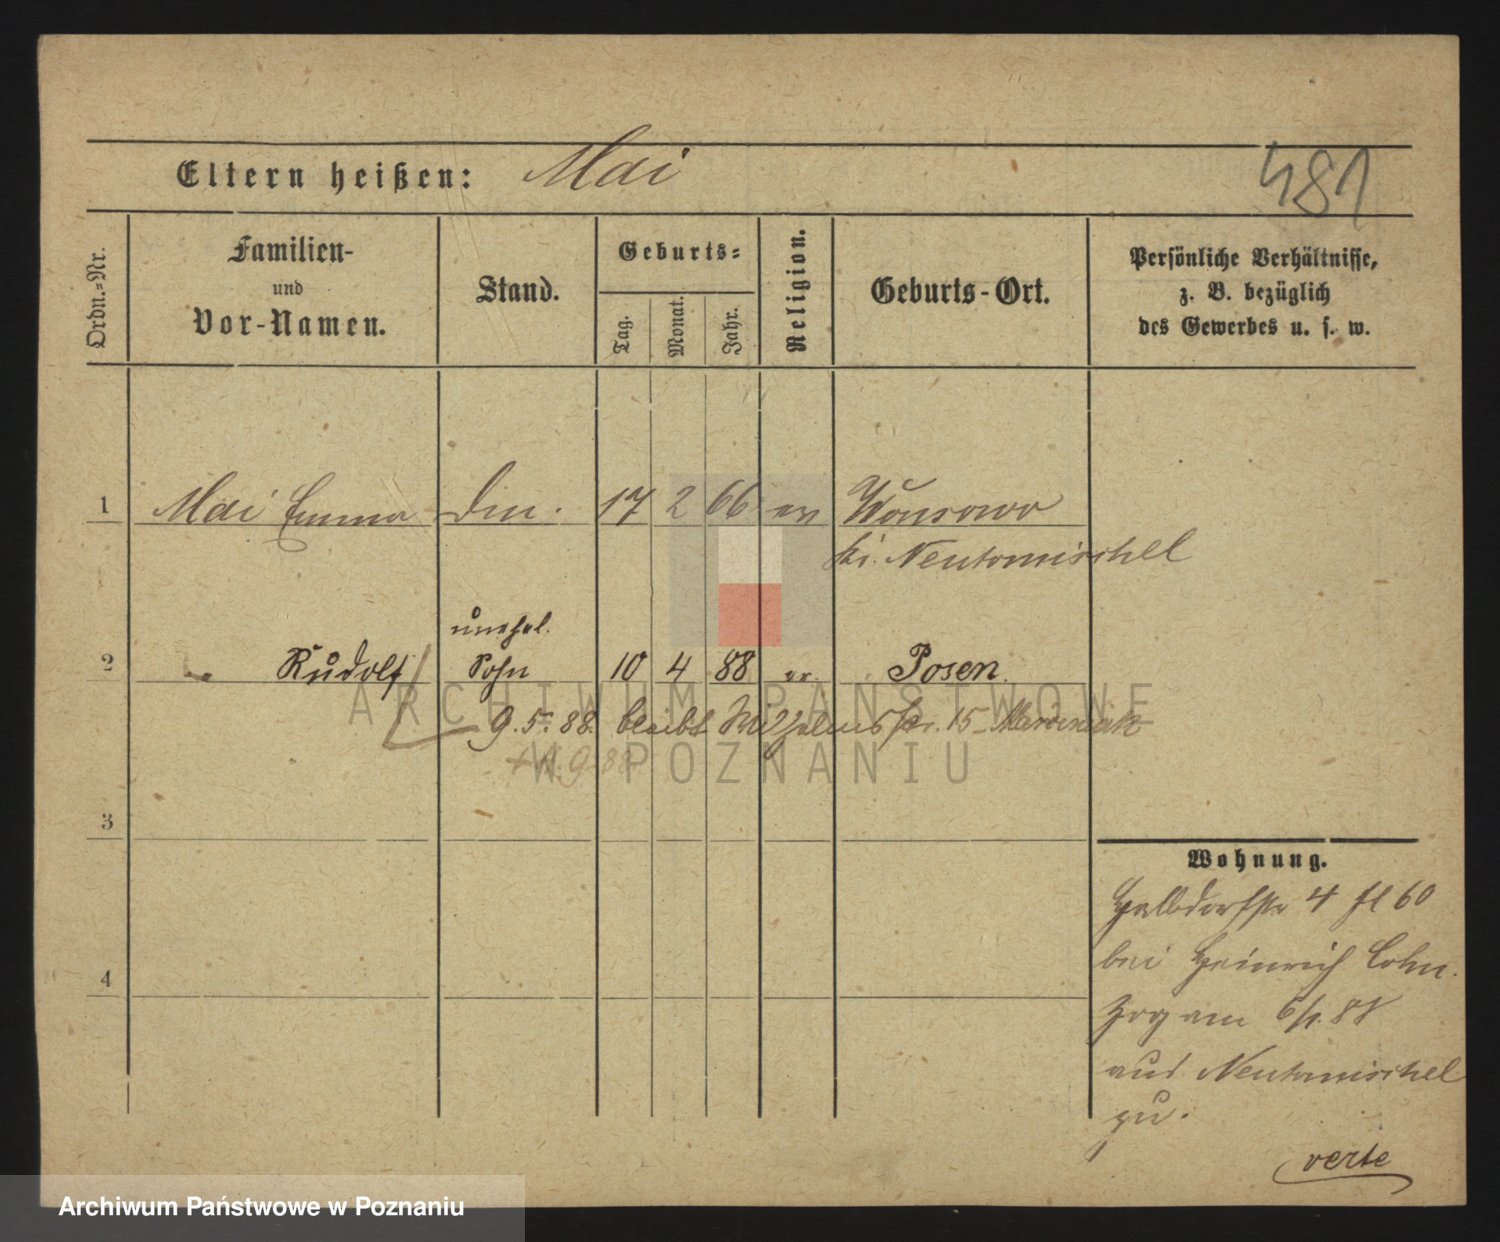 Eltern heißen: Mai
481
Ordn.-Nr.
Familien-
und
Vor-Namen.
Stand.
Geburts-
Tag.
Monat.
Jahr.
Religion.
Geburts-Ort.
Persönliche Verhältnisse,
z. B. bezüglich
des Gewerbes u. s. w.
1 Mai Emma Din. 17 2 66 ev Wonsowo
kr. Neutomischel
unehel.
2 Rudolf Sohn 10 4 88 ev. Posen.
9. 5. 88. bleibt Wilhelmsstr. 15
ARCHIWUM PAŃSTWOWE
W POZNANIU
3
Wohnung.
Halbdorfstr 4 fl 60
bei Heinrich Cohn.
4
Zog am 6/1. 88
aus Neutomischel
zu.
verte
Archiwum Państwowe w Poznaniu